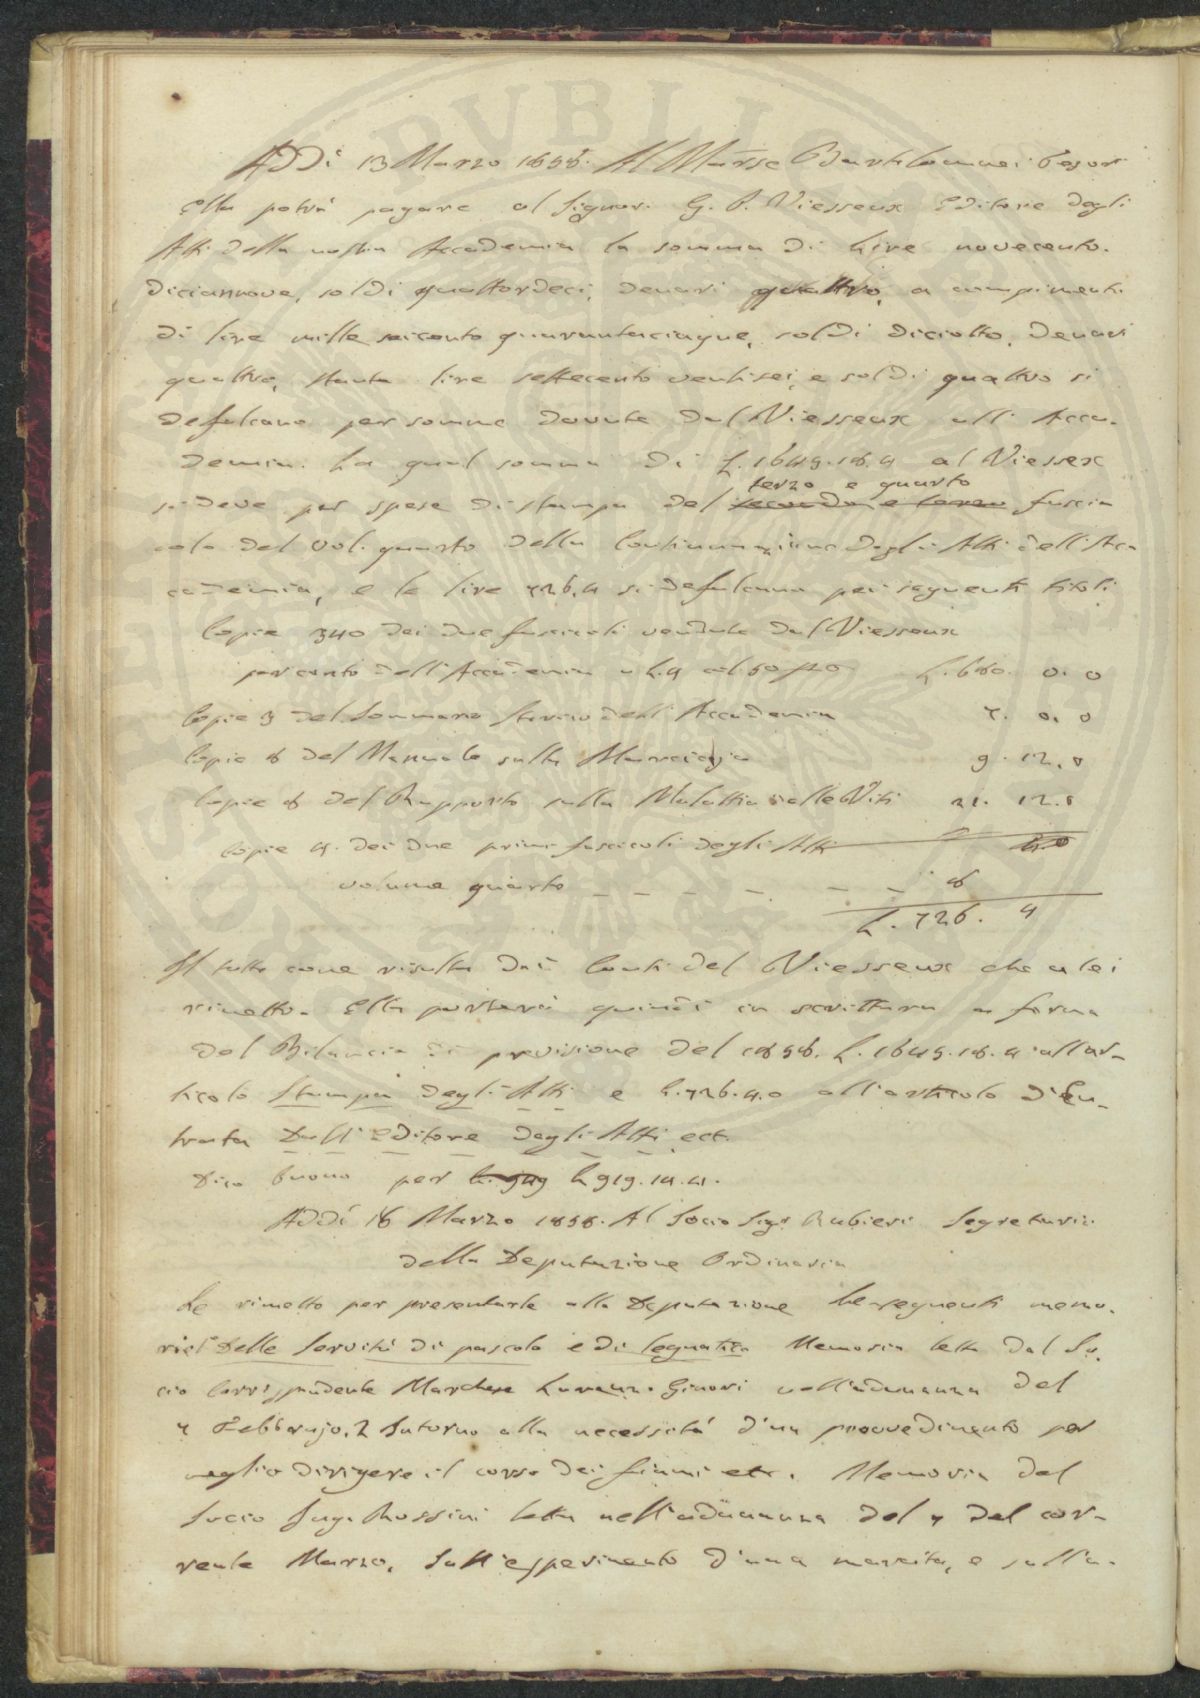 Addì 13 Marzo 1858. Al March.se Bartolommei Tesor.
Ella potrà pagare al Signor G. P. Viesseux Editore degli
Atti della nostra Accademia la somma di Lire novecento.
diciannove, soldi quattordeci, denari quattro, a compimento
di lire mille seicento quarantacinque, soldi diciotto, denari
quattro, stante lire settecento ventisei, e soldi quattro si
defalcano per somme dovute dal Viesseux all' Acca-
demia. La qual somma di L. 1645.18.4 al Viessex
terzo e quarto
si deve per spese di stampa del secondo e terzo fascia
colo del Vol. quarto della Continuazione degli Atti dell' Ac-
cademia, e le lire 726.4 si defalcano pei seguenti titoli
Copie 340 dei due fascicoli vendute dal Viesseux
per conto dell' Accademia a L. 4 col 50 p%o L. 680. 0. 0
Copie 3 del Sommario Storico dell' Accademia 7. 0. 0
Copie 8 del Manuale sulla 9. 12. 0
Copie 8 del Rapporto sulla Malattia delle Viti 21. 12. 0
Copie 4. dei due primi fascicoli degli Atti
volume quarto 8
L. 726. 4
Il tutto come risulta dai Conti del Viesseux che a lei
rimetto. Ella porterà quindi in scrittura a forma
del Bilancio di previsione del 1858. L. 1645.18.4 all'ar-
ticolo Stampa degli Atti e L. 726.4.0 all'articolo d'En-
trata Dall' Editore degli Atti ect.
Dico buono per L. 949 L 919.14.4.
Addì 16 Marzo 1858. Al Socio Sigr Rubieri Segretario
della Deputazione Ordinaria
Le rimetto per presentarle alla Deputazione le seguenti memo-
rie 1 Delle Servitù di pascolo e di legnatico Memoria letta dal So-
cio Corrispondente Marchese Lorenzo Ginori nell'adunanza del
7 Febbrajo. 2 Intorno alla necessità d'un provvedimento per
meglio dirigere il corso dei fiumi etc. Memoria del
Socio Ing. Rossini letta nell'adunanza del 7 del cor-
rente Marzo, Sull'esperimento d'una marcita, e sulla